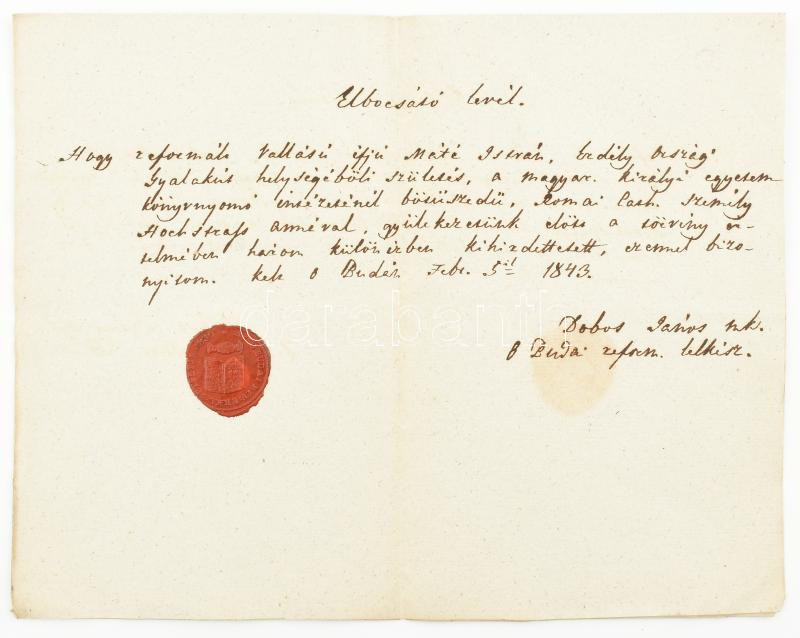 Elbocsátó levél.
Hogy reformált vallású ifjú Máté István, Erdély Országi
Gyalakúti helységéböli születés, a magyar. királyi egyetem
könyvnyomó intézeténél bötűszedő, Romai Cath. személy
Hochstrass annával, gyülekezetünk előtt a törvény ér-
telmében három különízben kihirdettetett, ezennel bizo-
nyitom. kelt O Budán Febr. 5én 1843.
Dobos János mk.
O Budai reform. lelkész.
darabanth